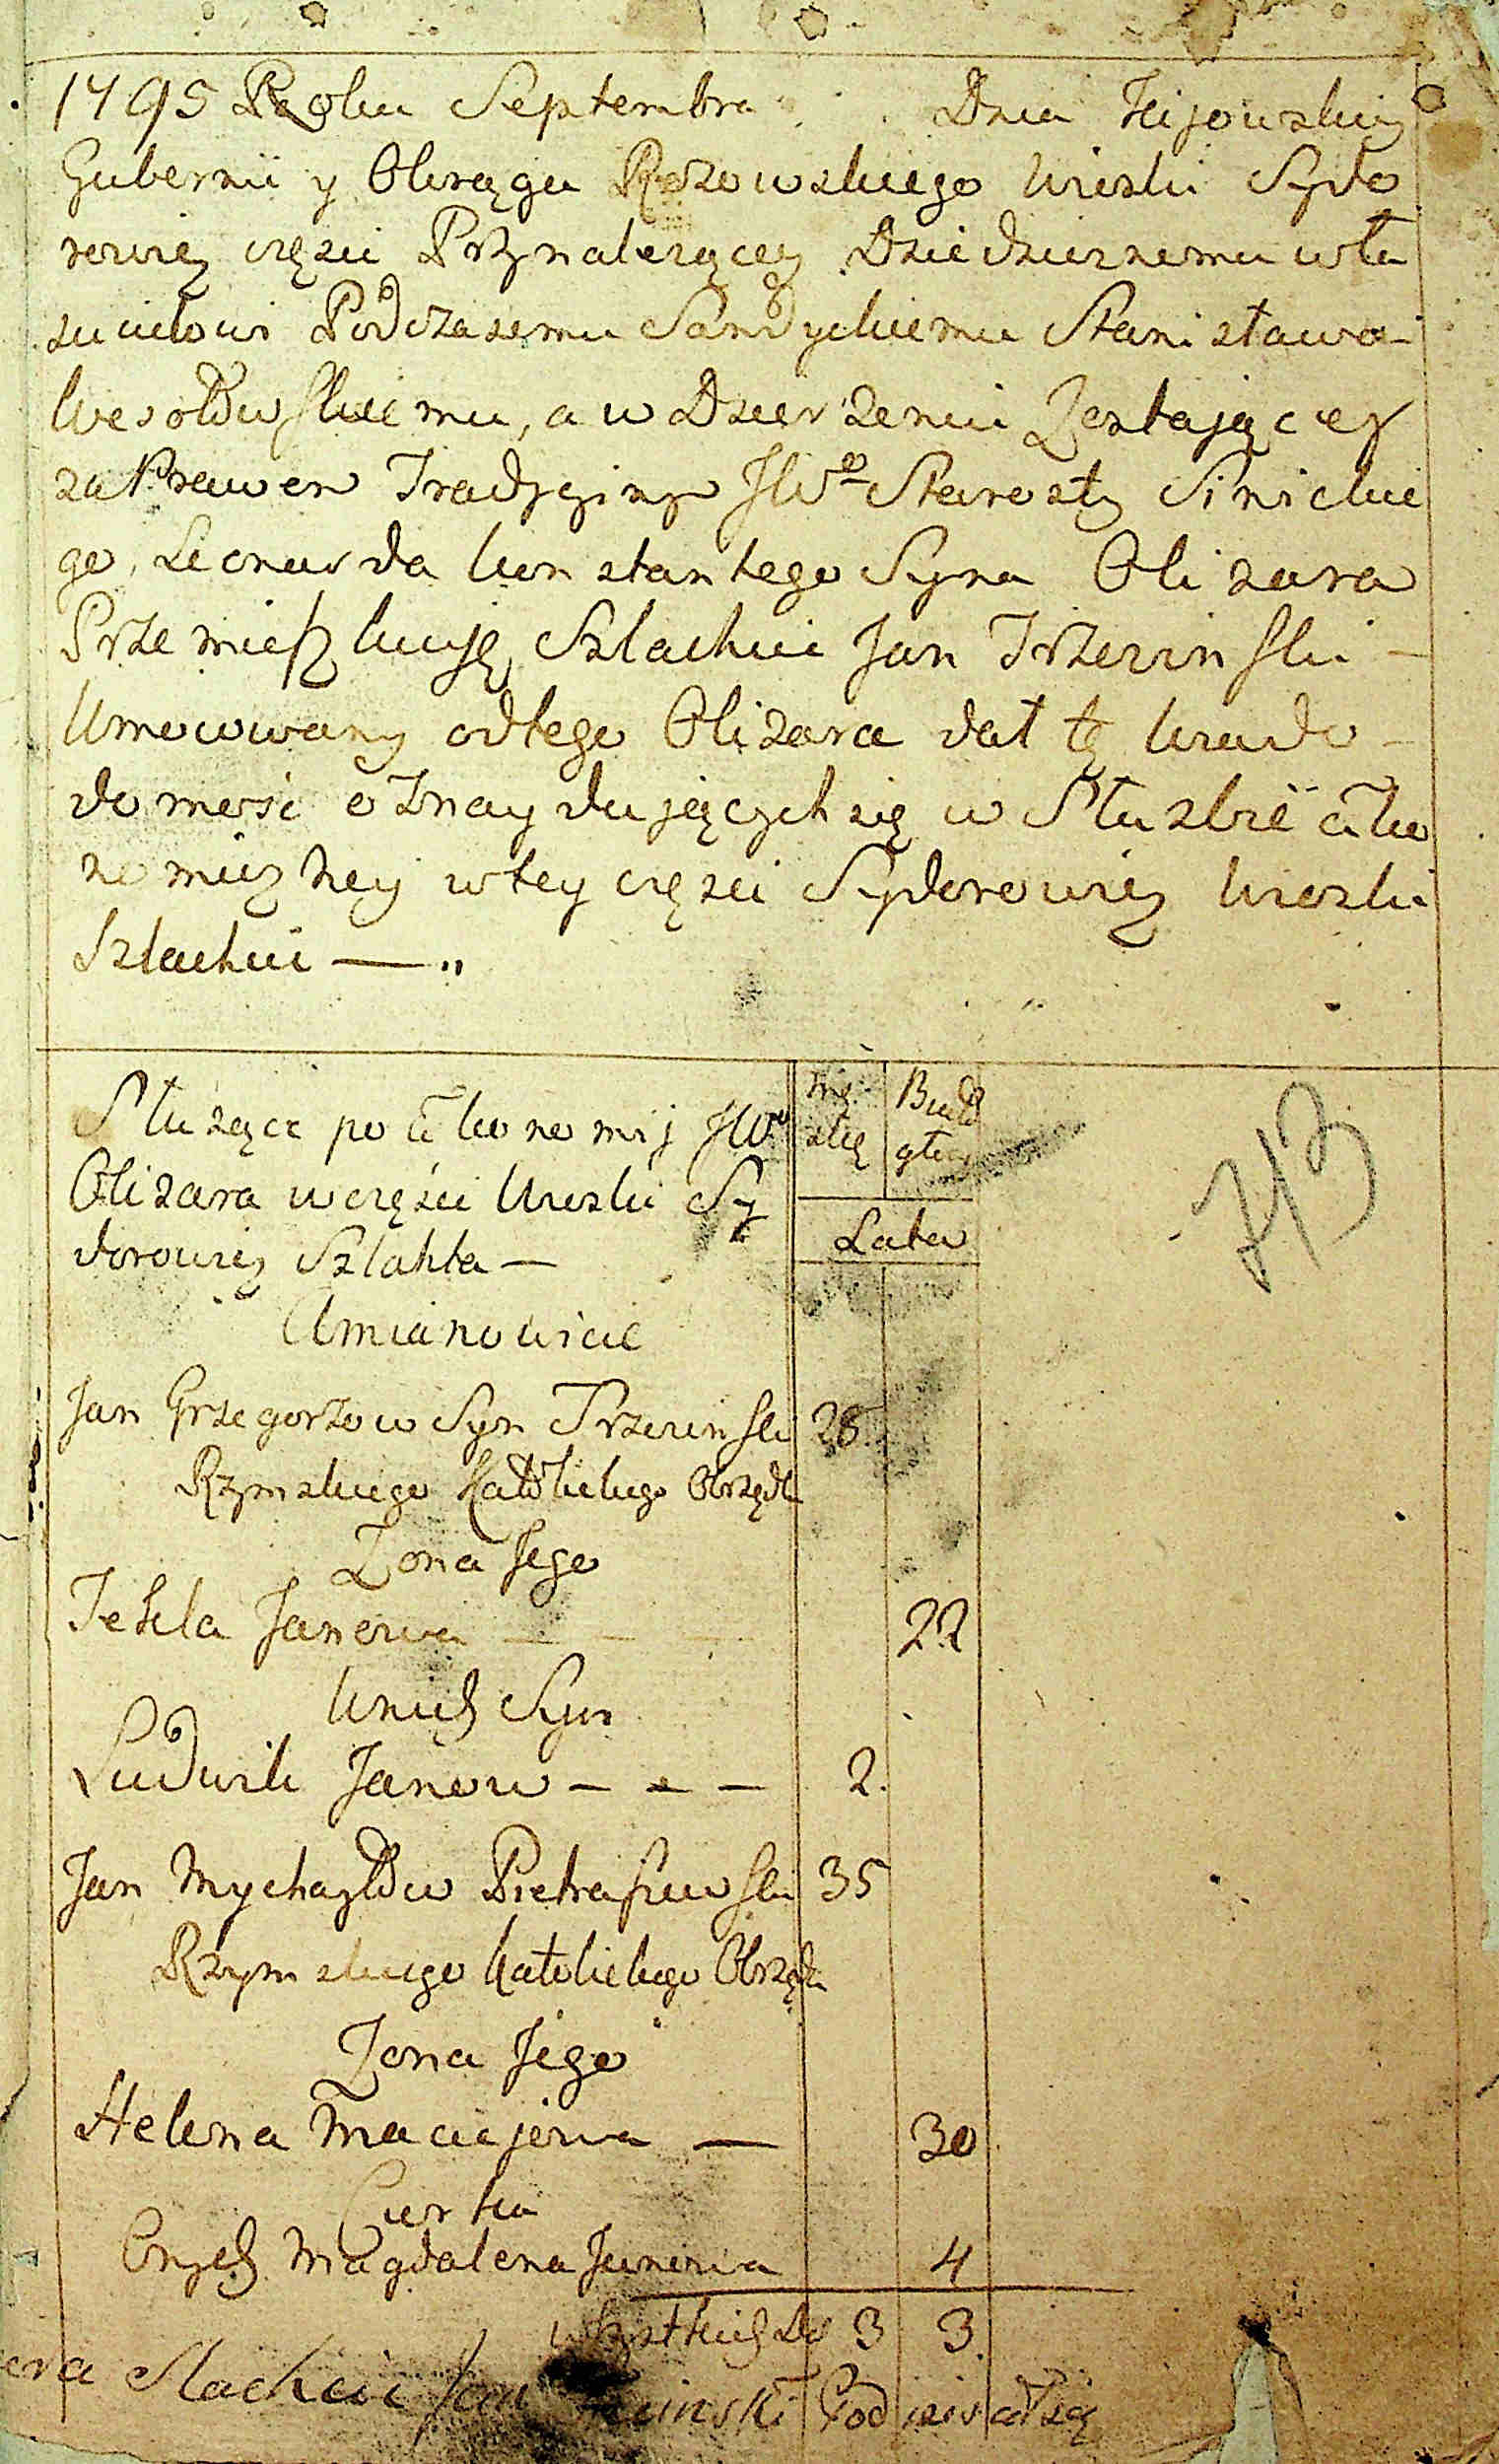 1795 Roku Septembra Dnia Kijowskiey
Gubernii y Okręgu Rożowskiego Wioski Sydo
rowiey części Przynależącey Dziedzicznemu wła
scicielowi Podczaszemu Sandyckiemu Stanisława-
Wesołowskiemu, a w Dzierżeniu Zostającey
za Prawem Tradycyinym JWo Starosty Sinickie
go, Leonarda Konstantego Syna Olizara
Przemieszkuję Szlachcic Jan Trzeciński -
Umocowany od tego Olizara dał tę wiado -
domość o Znaydujących się w Służbie Eko
nomiczney w tey części Sydorowiey Wioski
Szlachcic — „
Służące po Ekonomij JWo
Olizara w części Wioski Sy
dorowiey Szlahta —
Umianowicie
Mę
skię
Biało
głow
Lata
713
Jan Grzegorzow Syn Trzeciński 28
Rzymskiego Katolickiego Obrzędu
Żona Jego
Tekla Janowa — — — 22
U nich Syn
Ludwik Janow — — — 2.
Jan Mychayłow Pietraszewski 35
Rzymskiego Katolickiego Obrządu
Żona Jego
Helena Maciejowa — 30
Curka
Onych Magdalena Janowa 4
wszystkich Du 3 3.
Slachcic Jan Podpisał się